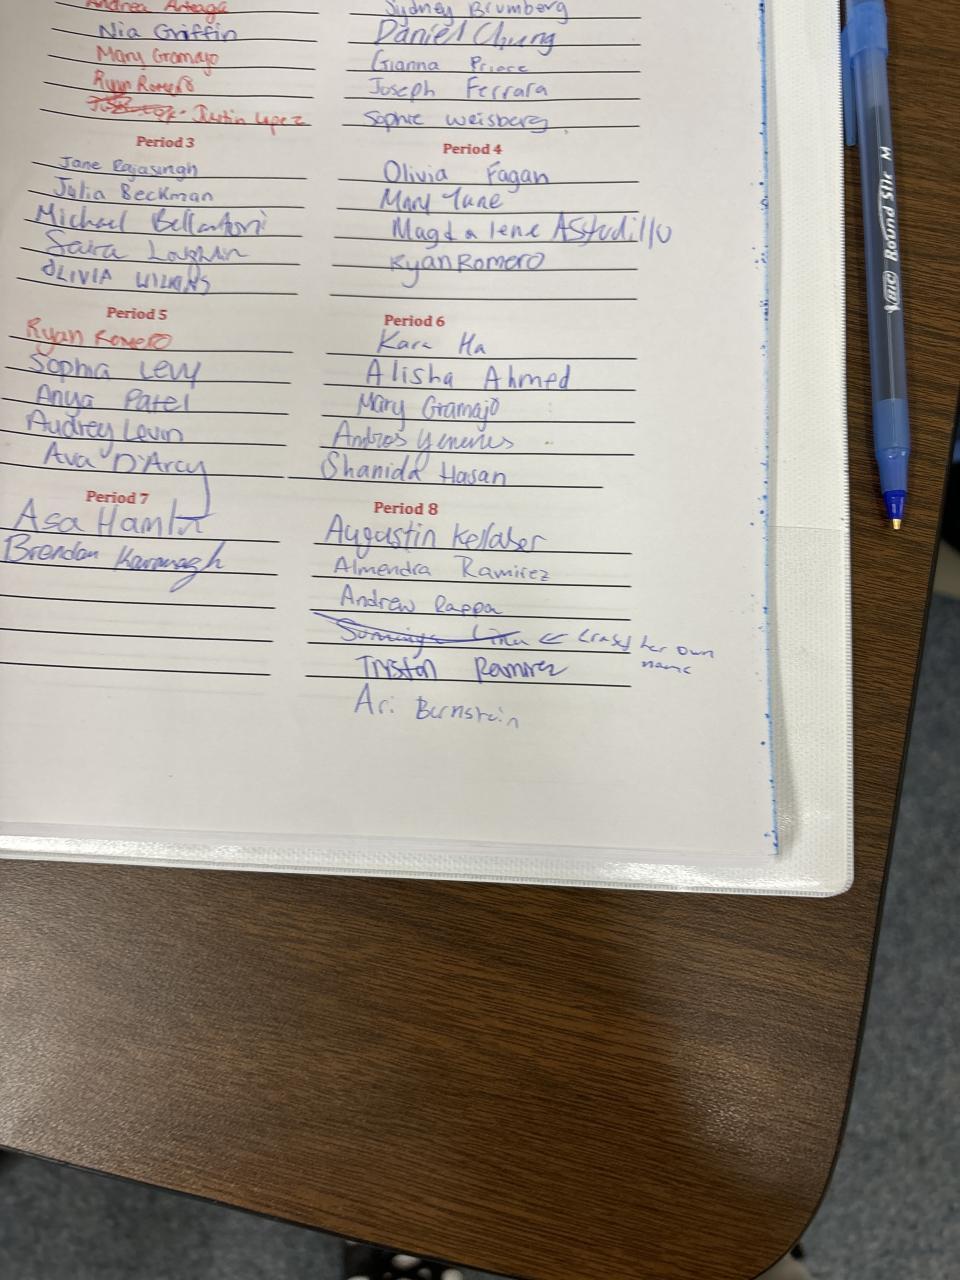 Andrea Arteaga
Nia Griffin
Mary Gramajo
Ryan Romero
Justin Lopez
Sydney Brumberg
Daniel Chung
Gianna
Joseph Ferrara
Sophie Weisberg
Period 3
Jane Rajasingh
Julia Beckman
Michael Bellantoni
Saira
OLIVIA
Period 4
Olivia Fagan
Mary Jane
Magdalene Astudillo
Ryan Romero
Period 5
Ryan Romero
Sophia Levy
Anya Patel
Audrey Levin
Ava D'Arcy
Period 6
Kara Ha
Alisha Ahmed
Mary Gramajo
Shanida Hasan
Period 7
Asa
Brendan Kavanagh
Period 8
Augustin
Almendra Ramirez
Andrew Rappa
← her own
name
Tristan Ramirez
Ari Bernstein
BIC Round Stic M